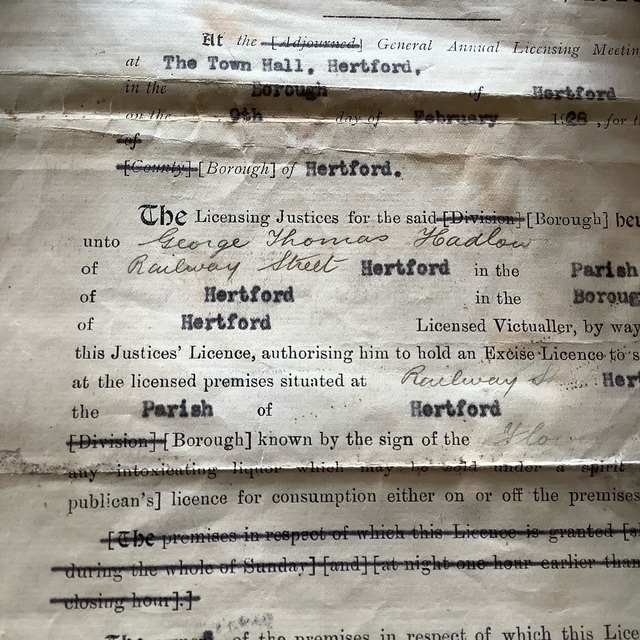 At the [Adjourned] General Annual Licensing Meetin
at The Town Hall, Hertford,
in the Borough of Hertford
on the 9th day of February 1928, for t
of
[County] [Borough] of Hertford.
The Licensing Justices for the said [Division] [Borough]
unto George Thomas Hadlow
of Railway Street Hertford in the Parish
of Hertford in the Boroug
of Hertford Licensed Victualler, by way
this Justices' Licence, authorising him to hold an Excise Licence to s
at the licensed premises situated at Railway S Her
the Parish of Hertford
[Division] [Borough] known by the sign of the
any intoxicating liquor which may be sold under a spirit
publican's] licence for consumption either on or off the premises
[The premises in respect of which this Licence is granted [s
during the whole of Sunday] [and] [at night one hour earlier than
closing hour].]
The of the premises in respect of which this Lice